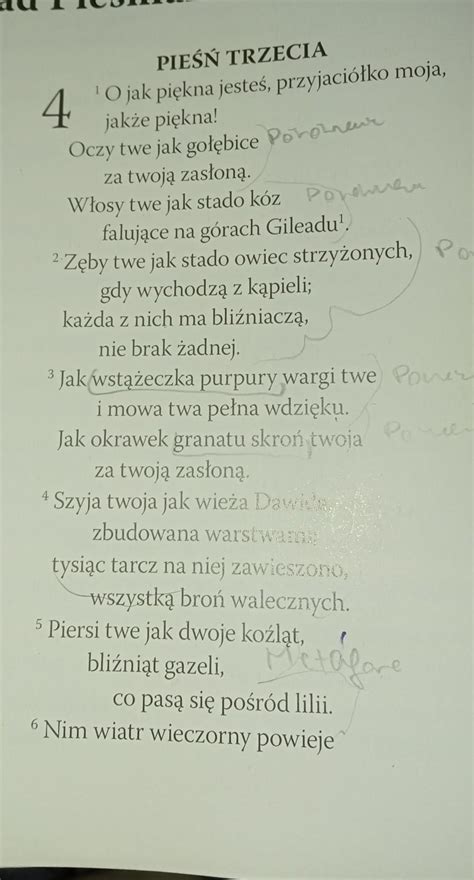 PIEŚŃ TRZECIA
4 ¹ O jak piękna jesteś, przyjaciółko moja,
jakże piękna!
Oczy twe jak gołębice
za twoją zasłoną.
Włosy twe jak stado kóz
falujące na górach Gileadu¹.
² Zęby twe jak stado owiec strzyżonych, Po
gdy wychodzą z kąpieli;
każda z nich ma bliźniaczą,
nie brak żadnej.
³ Jak wstążeczka purpury wargi twe
i mowa twa pełna wdzięku.
Jak okrawek granatu skroń twoja
za twoją zasłoną.
⁴ Szyja twoja jak wieża Dawida,
zbudowana warstwami,
tysiąc tarcz na niej zawieszono,
wszystką broń walecznych.
⁵ Piersi twe jak dwoje koźląt,
bliźniąt gazeli,
co pasą się pośród lilii.
⁶ Nim wiatr wieczorny powieje